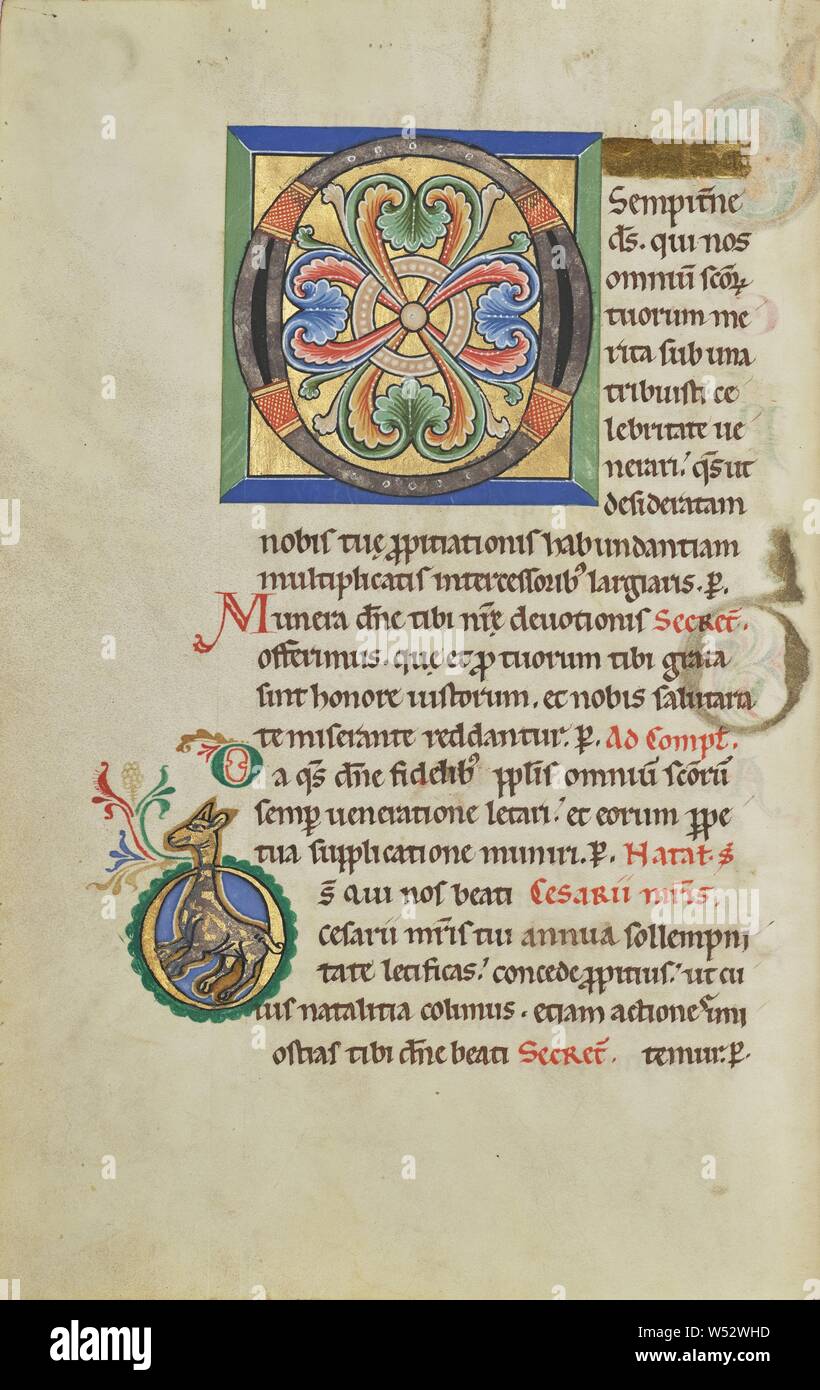 O
Sempit̄ne
d̄s. qui nos
omniū scōꝝ
tuorum me
rita sub una
tribuisti ce
lebritate ue
nerari; q̄s ut
desideratam
nobis tuę ꝓpitiationis habundantiam
multiplicatis intercessorib; largiaris. P̱.
Munera dn̄e tibi nr̄ę deuotionis Secret̄.
offerimus. quę et ꝓ tuorum tibi grata
sint honore iustorum. et nobis salutaria
te miserante reddantur. P̱. Ad Compl̄.
Da q̄s dn̄e fidelib; pp̄lis omniū scōrū
semp̱ ueneratione letari; et eorum ꝑpe
tua supplicatione muniri. P̱. Natal̄. S̄
D̄s qui nos beati Cesarii mr̄is.
cesarii mr̄is tui annua sollempni
tate letificas; concede ꝓpitius; ut cu
ius natalitia colimus. etiam actiones imi
ostias tibi dn̄e beati Secret̄. temur. P̱.
alamy
W52WHD
www.alamy.com